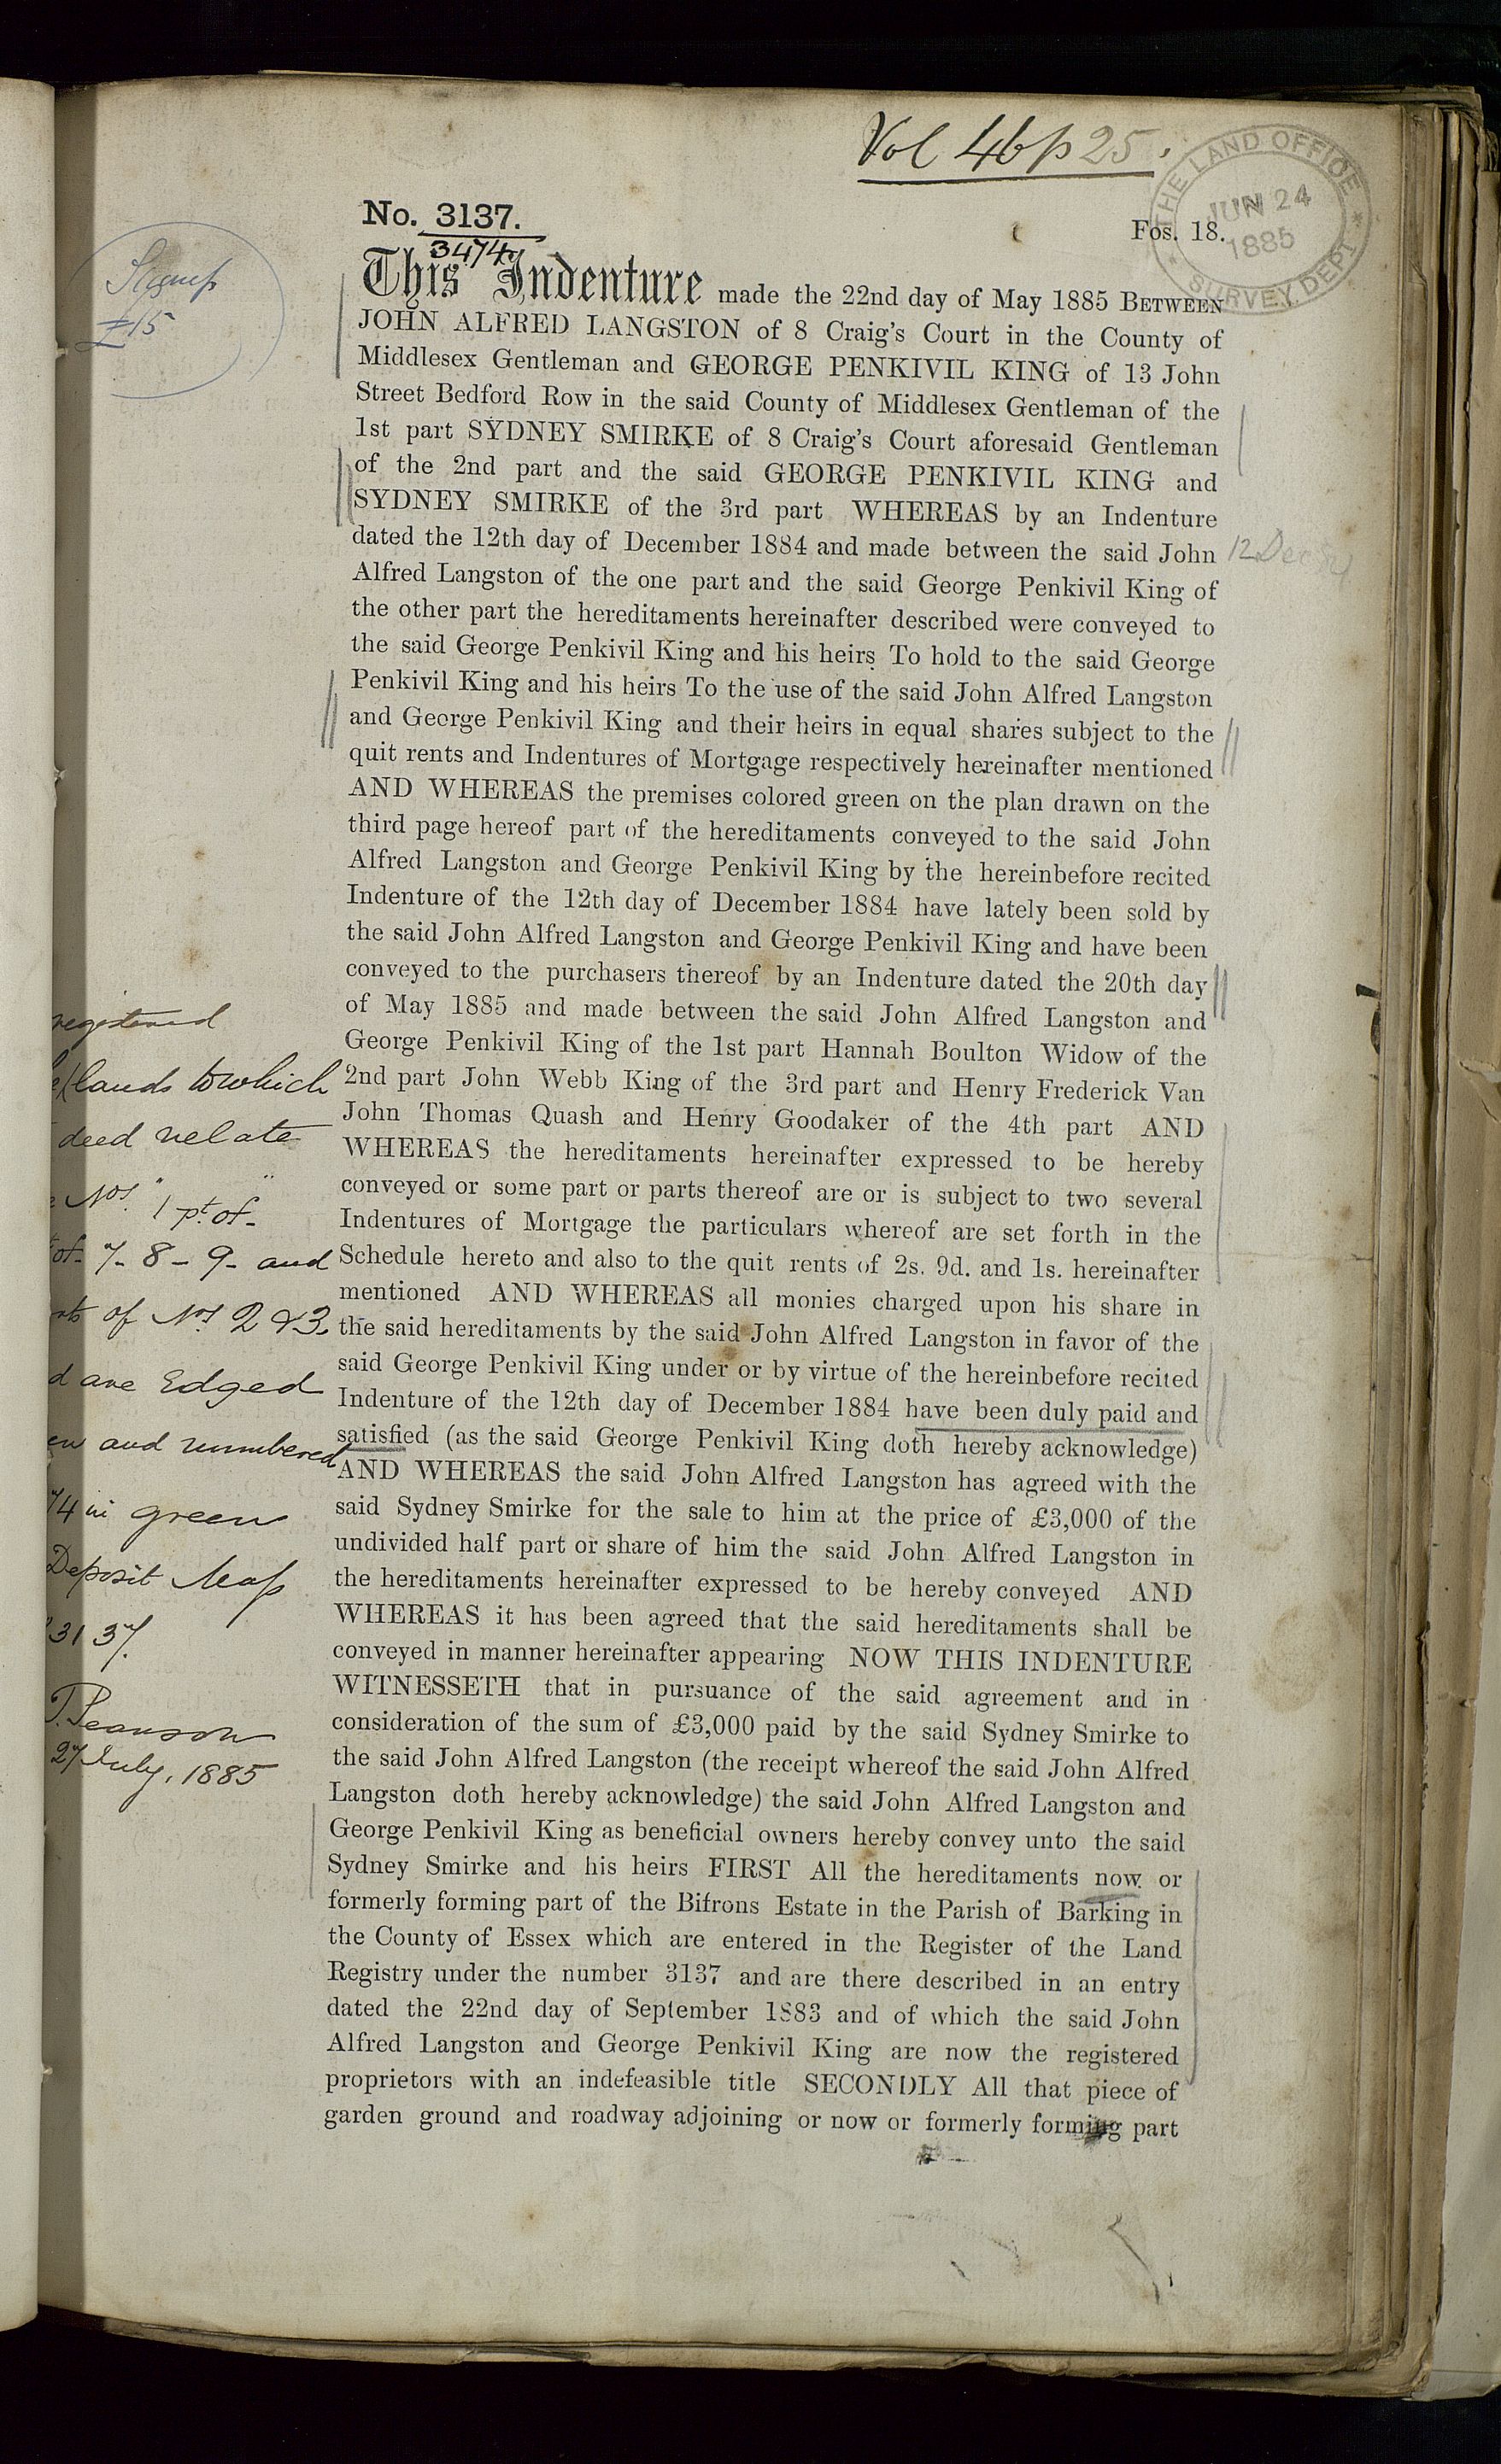 Vol 46 p 25.
THE LAND OFFICE
JUN 24
1885
SURVEY DEPT
No. 3137.
3474
Fos. 18.
Stamp
£15
This Indenture made the 22nd day of May 1885 BETWEEN
JOHN ALFRED LANGSTON of 8 Craig's Court in the County of
Middlesex Gentleman and GEORGE PENKIVIL KING of 13 John
Street Bedford Row in the said County of Middlesex Gentleman of the
1st part SYDNEY SMIRKE of 8 Craig's Court aforesaid Gentleman
of the 2nd part and the said GEORGE PENKIVIL KING and
SYDNEY SMIRKE of the 3rd part WHEREAS by an Indenture
dated the 12th day of December 1884 and made between the said John
12 Dec 84
Alfred Langston of the one part and the said George Penkivil King of
the other part the hereditaments hereinafter described were conveyed to
the said George Penkivil King and his heirs To hold to the said George
Penkivil King and his heirs To the use of the said John Alfred Langston
and George Penkivil King and their heirs in equal shares subject to the
quit rents and Indentures of Mortgage respectively hereinafter mentioned
AND WHEREAS the premises colored green on the plan drawn on the
third page hereof part of the hereditaments conveyed to the said John
Alfred Langston and George Penkivil King by the hereinbefore recited
Indenture of the 12th day of December 1884 have lately been sold by
the said John Alfred Langston and George Penkivil King and have been
conveyed to the purchasers thereof by an Indenture dated the 20th day
of May 1885 and made between the said John Alfred Langston and
George Penkivil King of the 1st part Hannah Boulton Widow of the
2nd part John Webb King of the 3rd part and Henry Frederick Van
John Thomas Quash and Henry Goodaker of the 4th part AND
WHEREAS the hereditaments hereinafter expressed to be hereby
conveyed or some part or parts thereof are or is subject to two several
Indentures of Mortgage the particulars whereof are set forth in the
Schedule hereto and also to the quit rents of 2s. 9d. and 1s. hereinafter
mentioned AND WHEREAS all monies charged upon his share in
the said hereditaments by the said John Alfred Langston in favor of the
said George Penkivil King under or by virtue of the hereinbefore recited
Indenture of the 12th day of December 1884 have been duly paid and
satisfied (as the said George Penkivil King doth hereby acknowledge)
AND WHEREAS the said John Alfred Langston has agreed with the
said Sydney Smirke for the sale to him at the price of £3,000 of the
undivided half part or share of him the said John Alfred Langston in
the hereditaments hereinafter expressed to be hereby conveyed AND
WHEREAS it has been agreed that the said hereditaments shall be
conveyed in manner hereinafter appearing NOW THIS INDENTURE
WITNESSETH that in pursuance of the said agreement and in
consideration of the sum of £3,000 paid by the said Sydney Smirke to
the said John Alfred Langston (the receipt whereof the said John Alfred
Langston doth hereby acknowledge) the said John Alfred Langston and
George Penkivil King as beneficial owners hereby convey unto the said
Sydney Smirke and his heirs FIRST All the hereditaments now or
formerly forming part of the Bifrons Estate in the Parish of Barking in
the County of Essex which are entered in the Register of the Land
Registry under the number 3137 and are there described in an entry
dated the 22nd day of September 1883 and of which the said John
Alfred Langston and George Penkivil King are now the registered
proprietors with an indefeasible title SECONDLY All that piece of
garden ground and roadway adjoining or now or formerly forming part
registered
lands to which
deed relate
Nos. 1 pt. of
of 7 - 8 - 9 - and
of Nos 2 & 3
are Edged
and numbered
74 in green
Deposit Map
3137.
T. Pearson
27 July, 1885